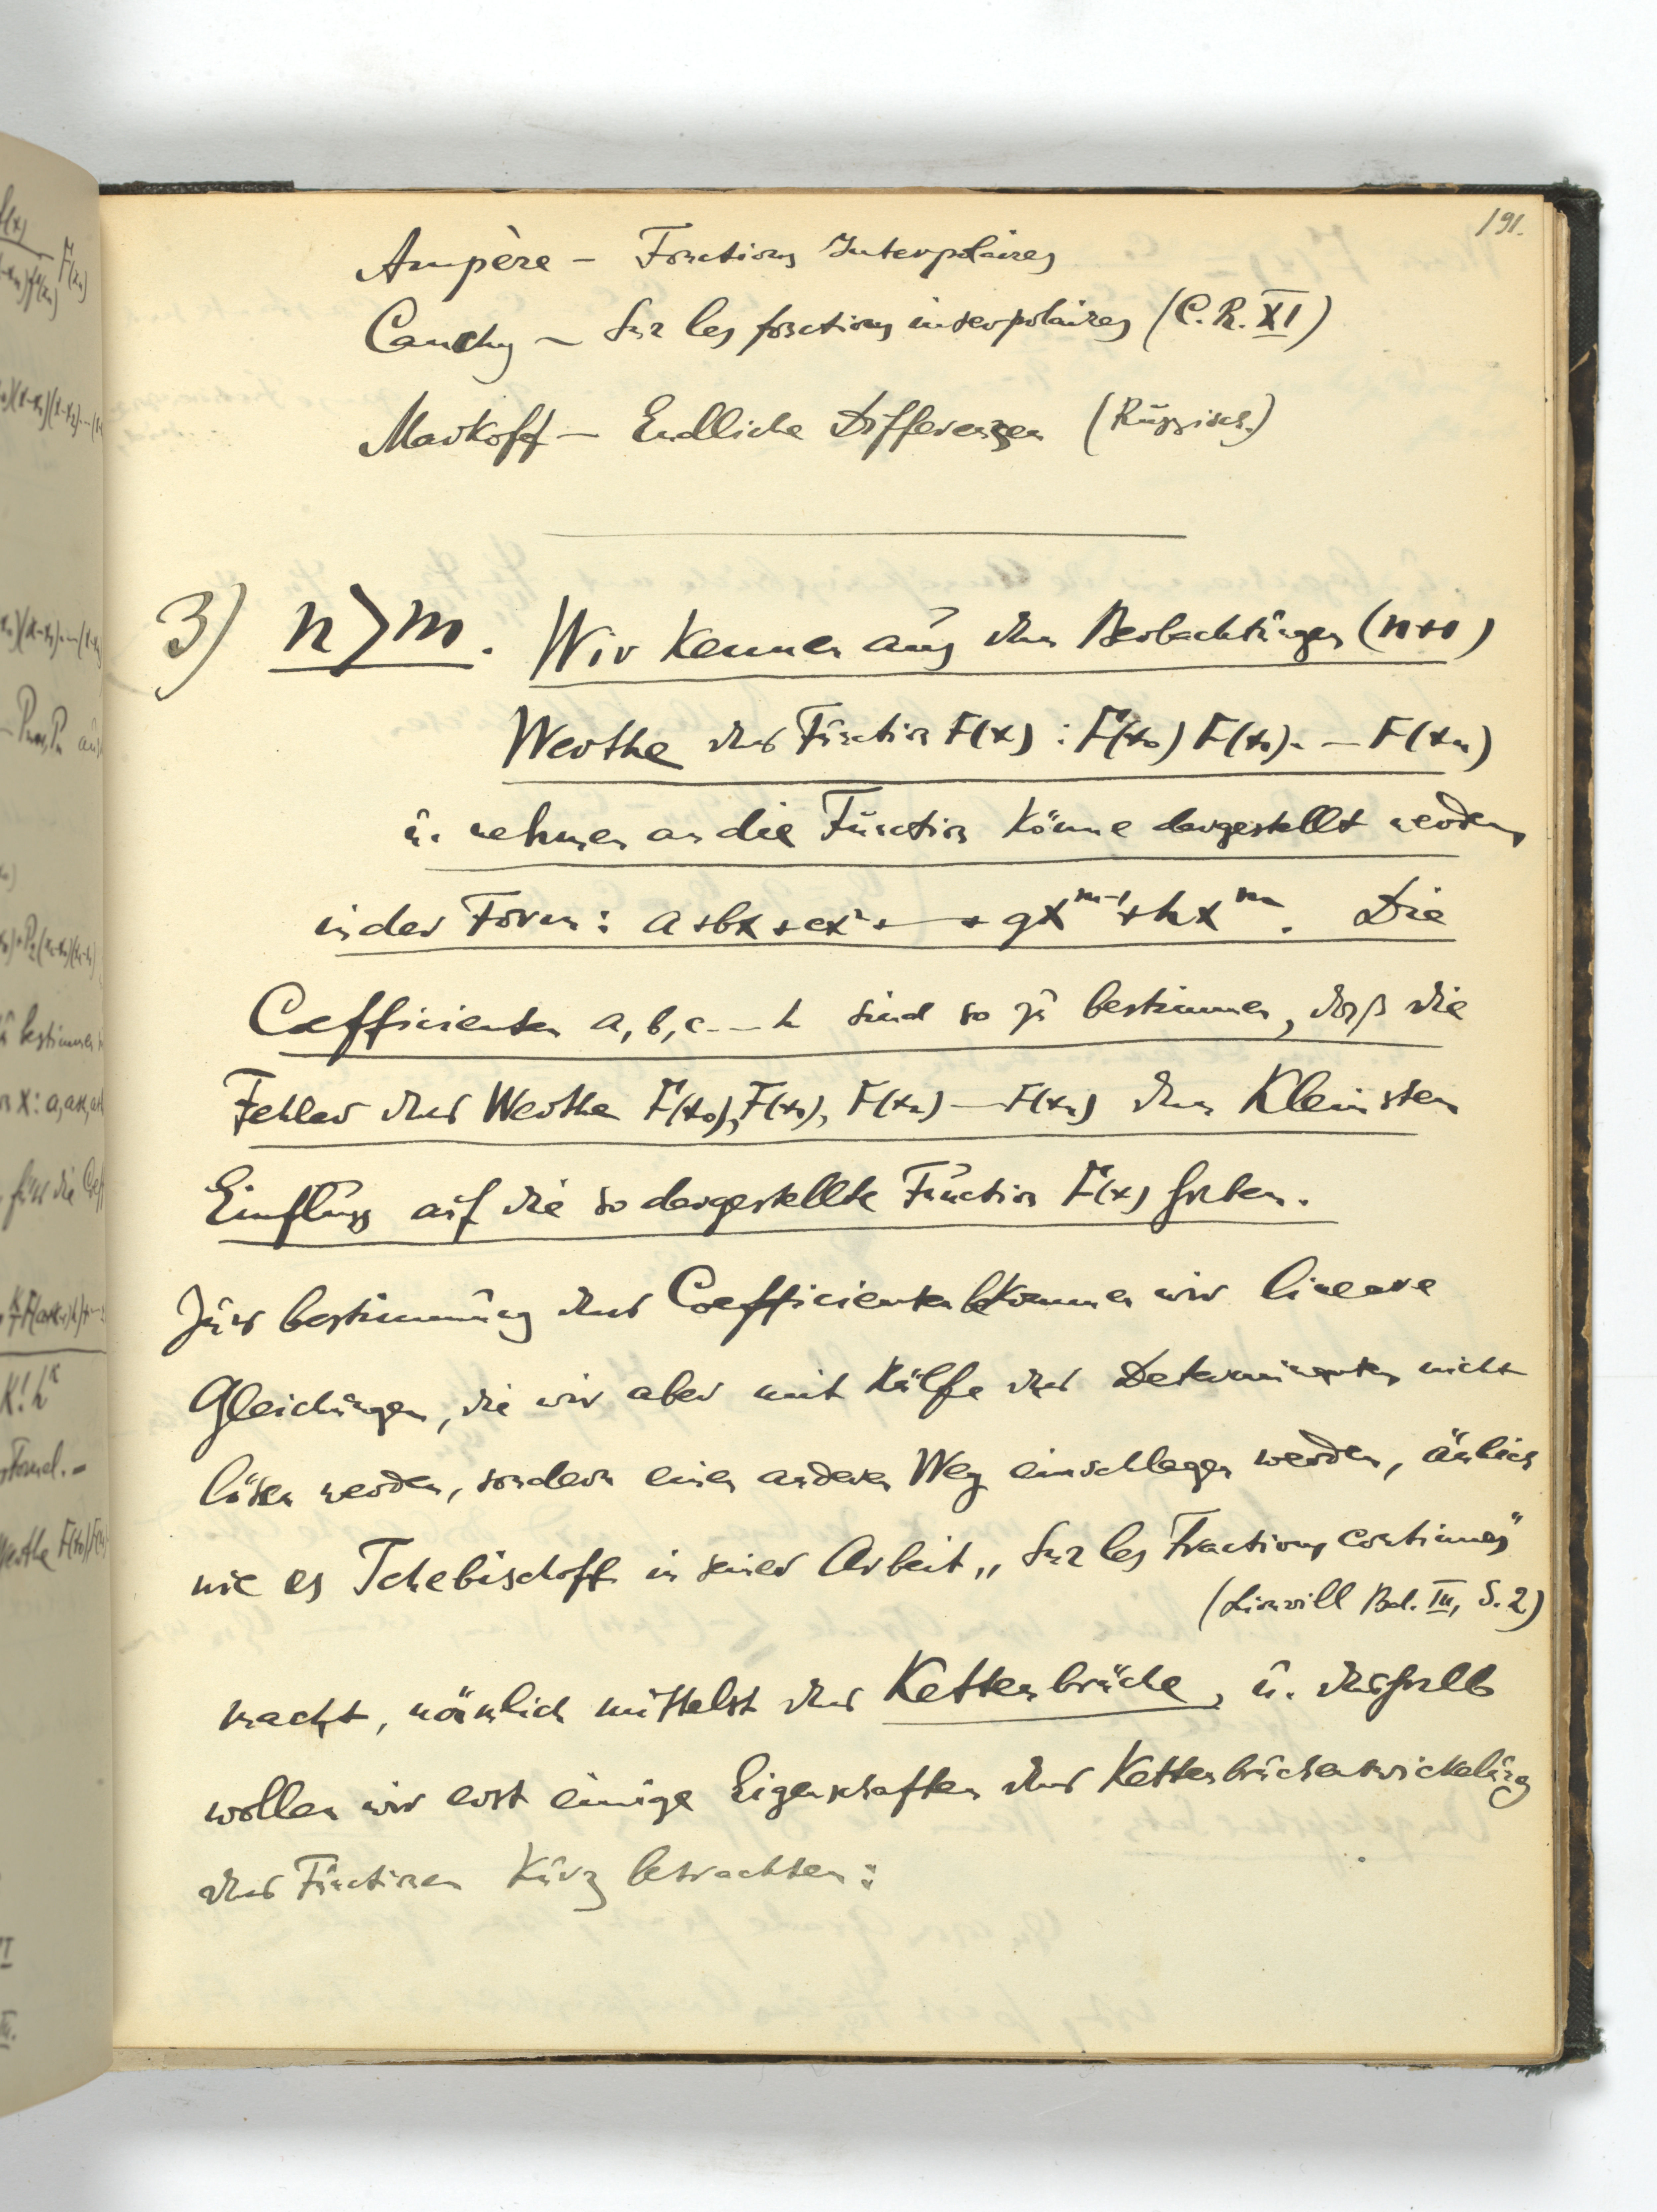 191.
Ampère – Fonctions Interpolaires
Cauchy – Sur les fonctions interpolaires (C. R. XI)
Markoff – Endliche Differenzen (Russisch.)
3) n>m. Wir kennen aus den Beobachtungen (n+1)
Werthe der Function F(x) : F(x₀) F(x₁). — F(xₙ)
u. nehmen an die Function könne dargestellt werden,
in der Form: a+bx+cx²+ — + gxᵐ⁻¹+hxᵐ. Die
Coefficienten a, b, c - - - h sind so zu bestimmen, daß die
Fehler der Werthe F(x₀), F(x₁), F(x₂) — F(xₙ) den Kleinsten
Einfluss auf die so dargestellte Function F(x) haben.
Zur bestimmung der Coefficienten bekommen wir lineare
Gleichungen, die wir aber mit Hülfe der Determinanten nicht
lösen werden, sondern einen anderen Weg einschlagen werden, änlich
wie es Tchebischoff in seiner Arbeit „Sur les Fractions continues"
(Liouvill Bd. III, S. 2)
macht, nämlich mittelst der Kettenbrüche, u. deshalb
wollen wir erst einige Eigenschaften der Kettenbruchentwickelung
der Functionen Kurz betrachten: